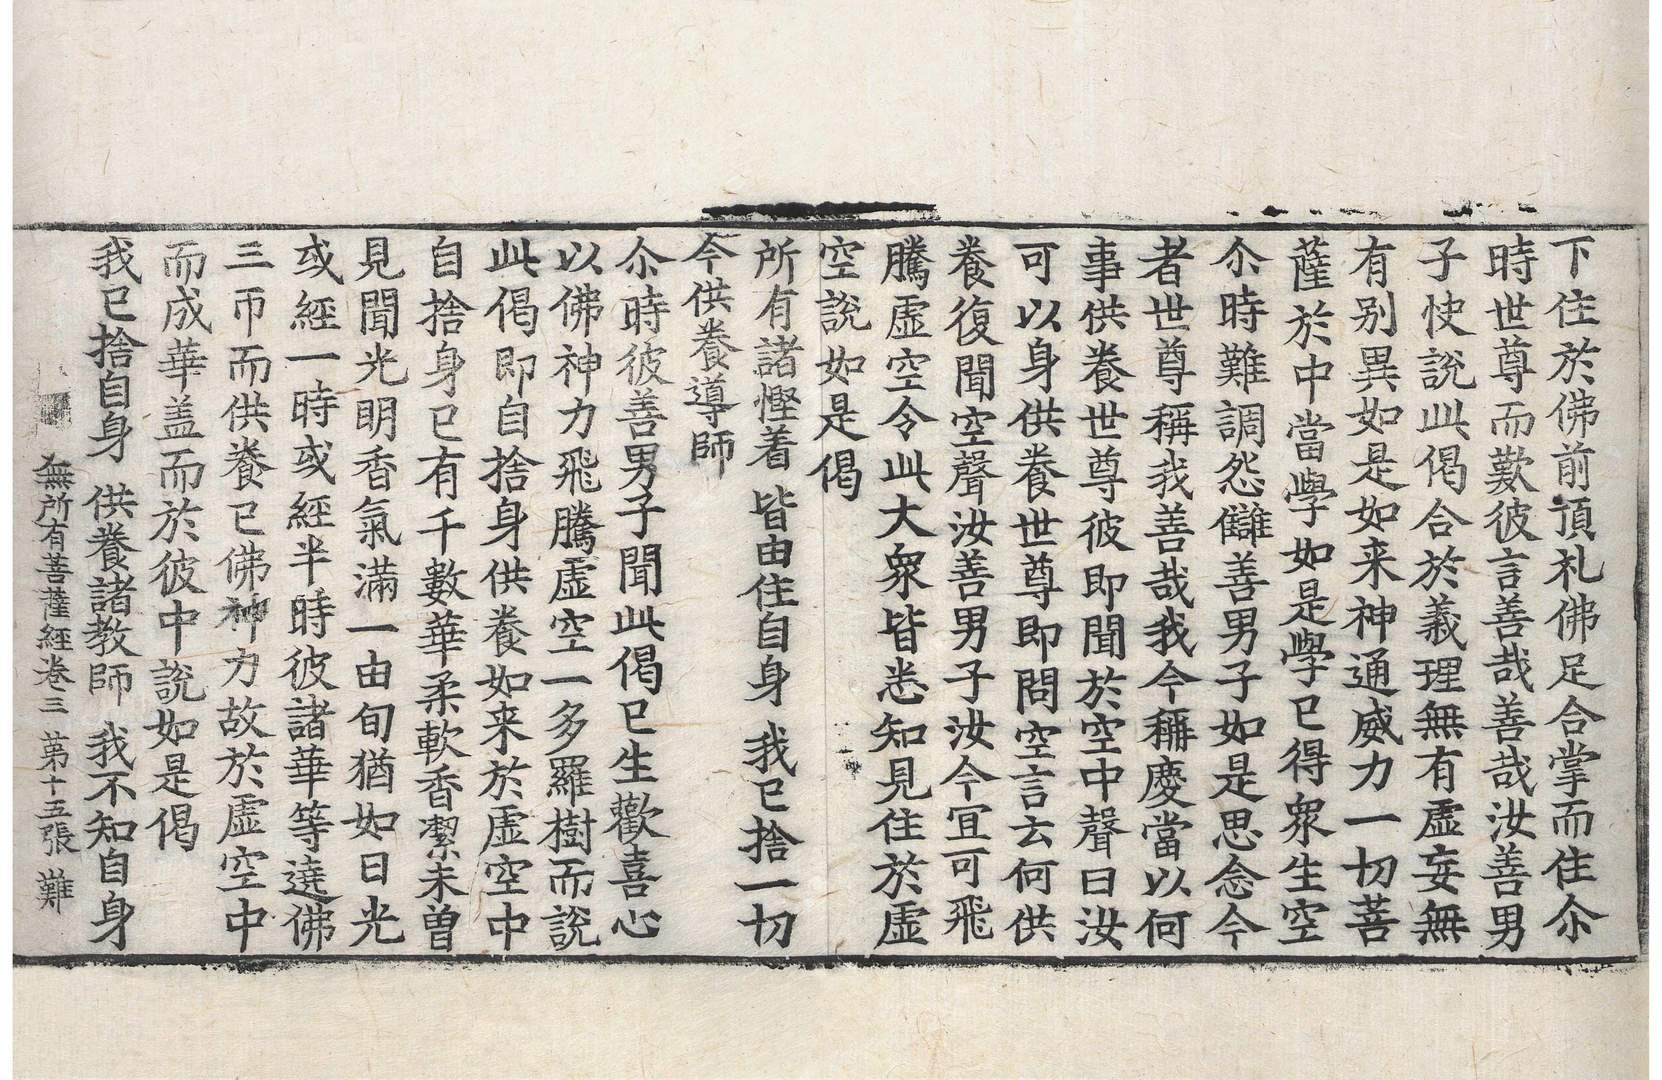 下住於佛前頂礼佛足合掌而住尒
時世尊而歎彼言善哉善哉汝善男
子快說此偈合於義理無有虛妄無
有别異如是如来神通威力一切菩
薩於中當學如是學已得衆生空
尒時難調怨讎善男子如是思念今
者世尊稱我善哉我今稱慶當以何
事供養世尊彼即聞於空中聲曰汝
可以身供養世尊即問空言去何供
養復聞空聲汝善男子汝今宜可飛
騰虛空令此大衆皆悉知見住於虛
空說如是偈
所有諸慳着 皆由住自身 我已捨一切
今供養導師
尒時彼善男子聞此偈已生歡喜心
以佛神力飛騰虛空一多羅樹而說
此偈即自捨身供養如来於虛空中
自捨身已有千數華柔軟香潔未曽
見聞光明香氣滿一由旬猶如日光
或經一時或經半時彼諸華等遶佛
三帀而供養已佛神力故於虛空中
而成華盖而於彼中說如是偈
我已捨自身 供養諸教師 我不知自身
無所有菩薩經卷三 第十五張 難